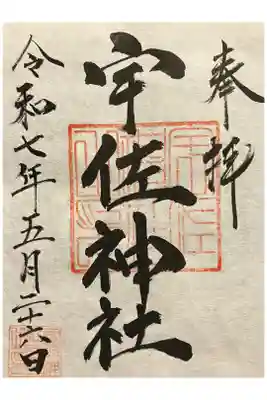 奉拝
宇佐神社
令和七年五月二十六日